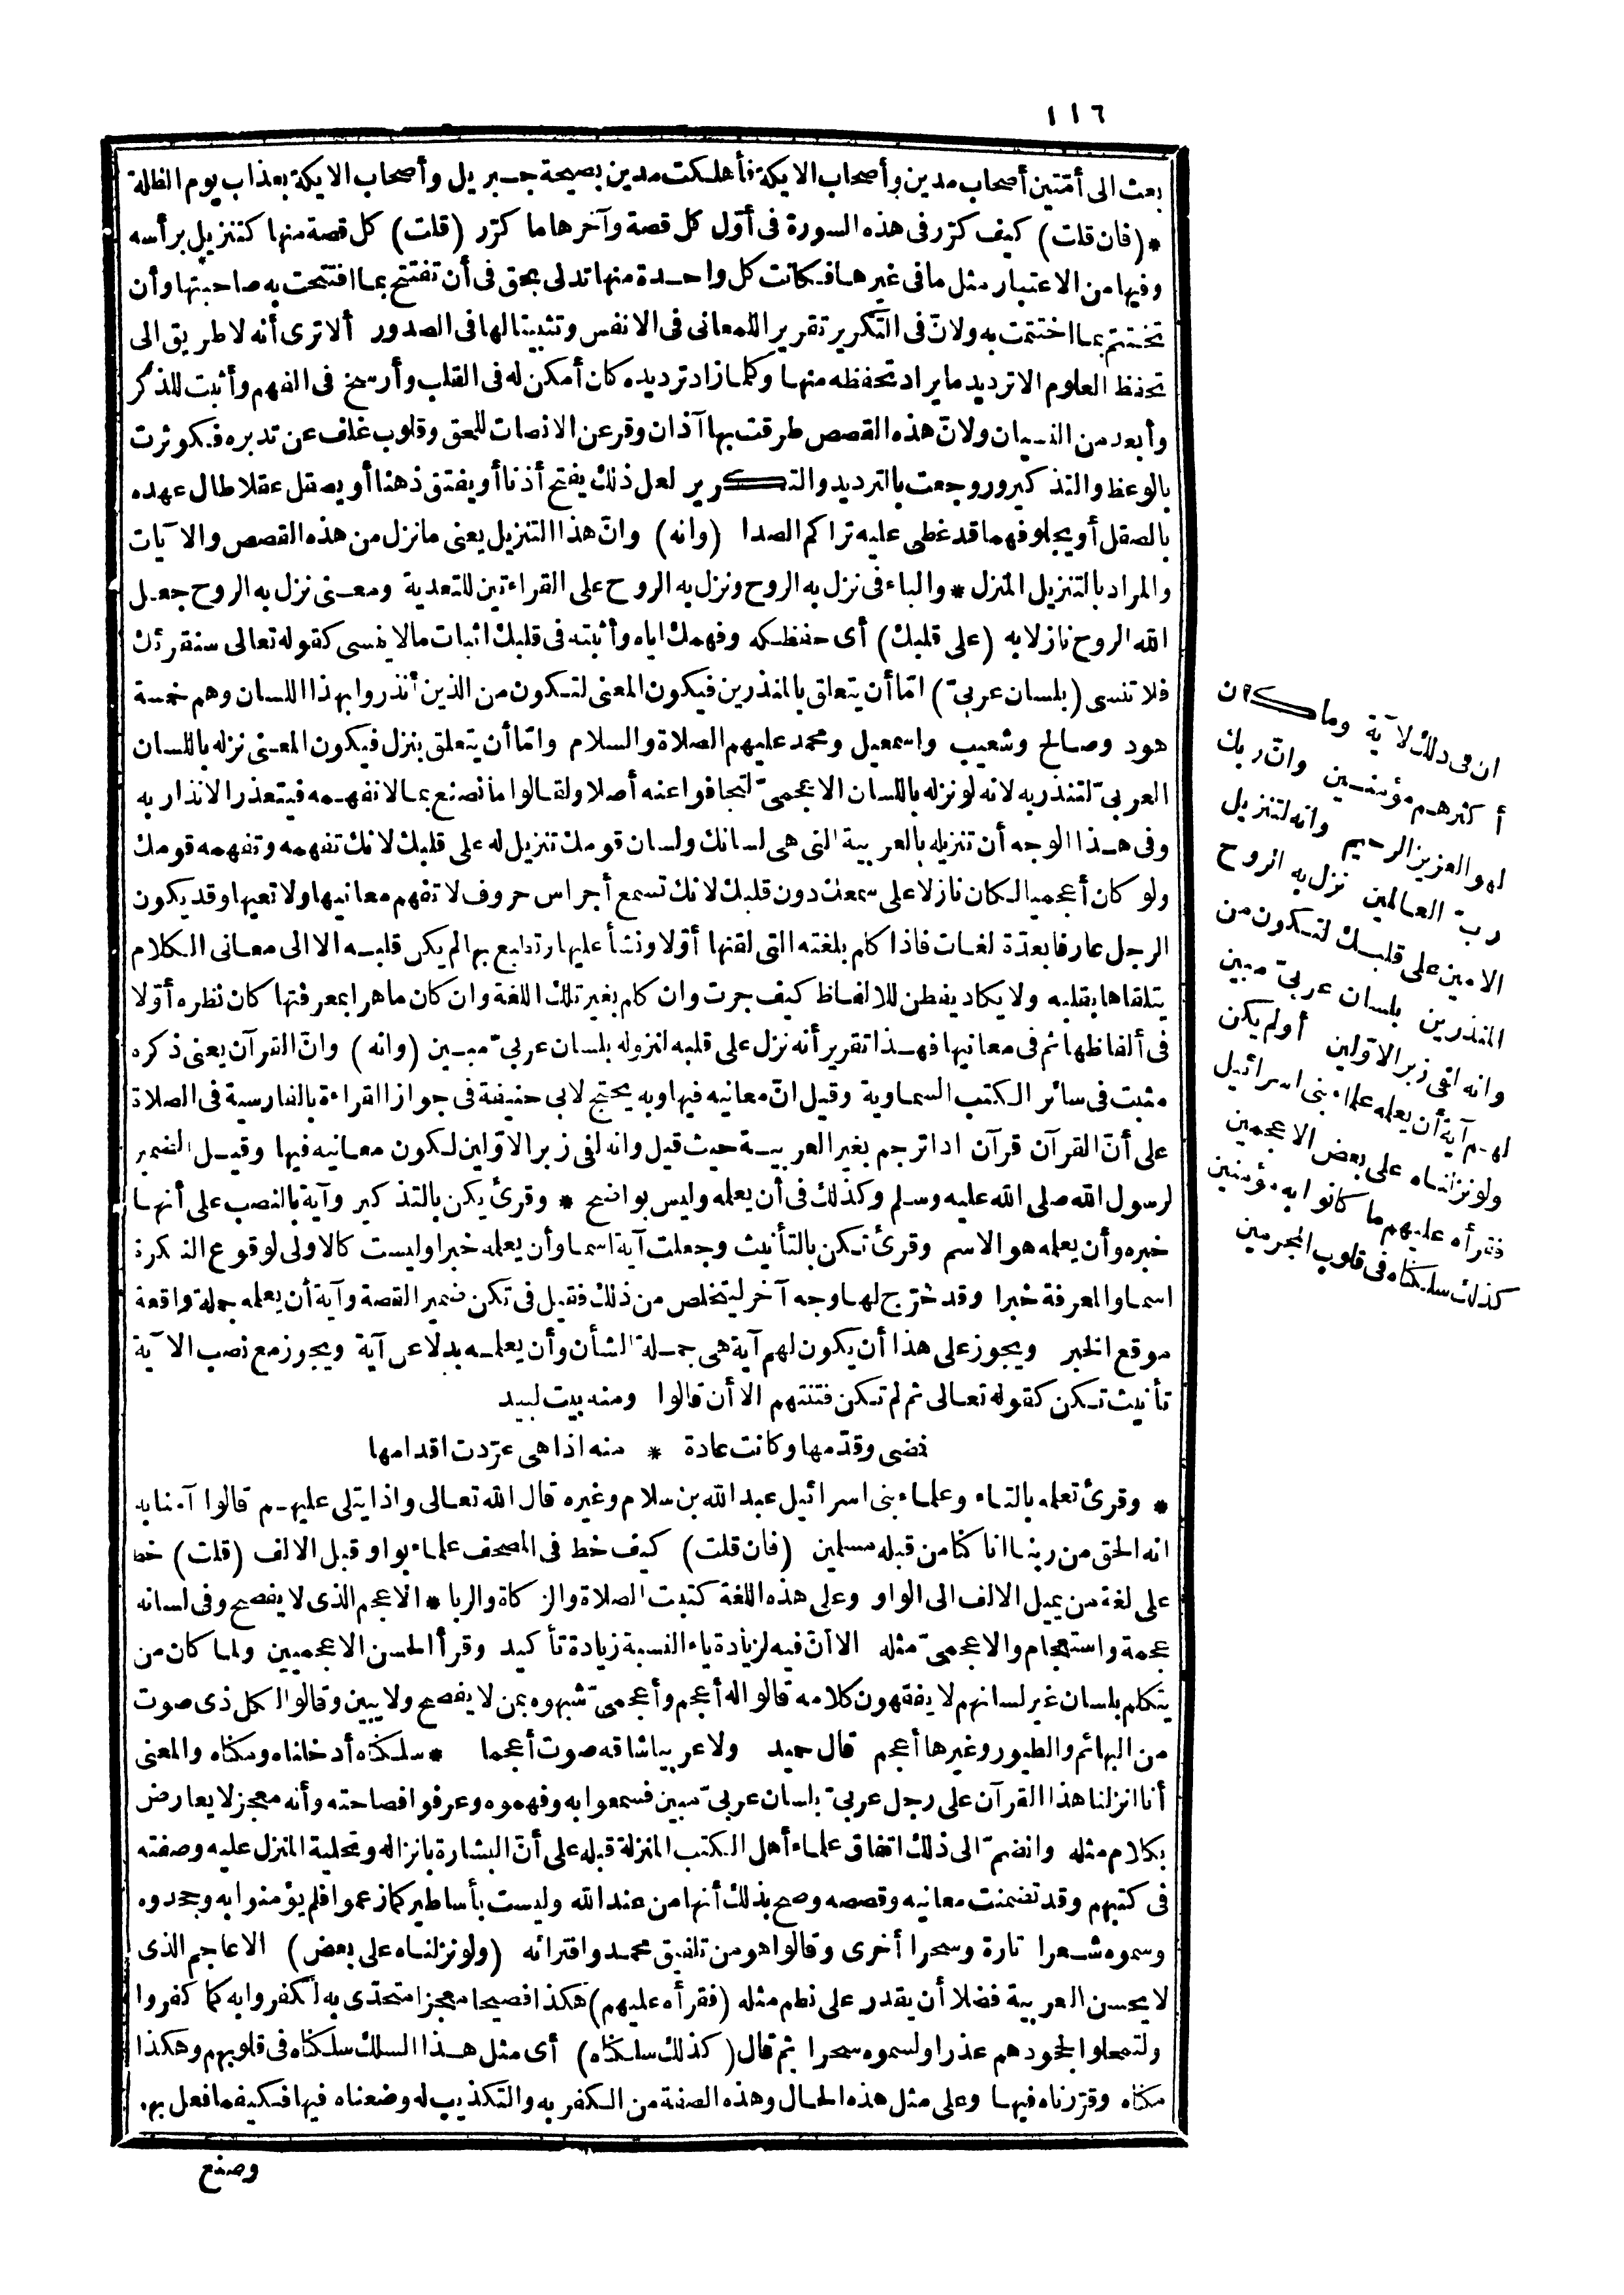 ١١٦
بعث الى أمّتين أصحاب مدين وأصحاب الايكة فأهلكت مدين بصيحة جبريل وأصحاب الايكة بعذاب يوم الظلة
* (فان قلت) كيف كرّر فى هذه السورة فى أوّل كل قصة وآخرها ما كرّر (قلت) كل قصة منها كتنزيل برأسه
وفيها من الاعتبار مثل ما فى غيرها فكانت كل واحدة منها تدلى بحق فى أن تفتتح بما افتتحت به صاحبتها وأن
تختتم بما اختتمت به ولانّ فى التكرير تقريرا للمعانى فى الانفس وتثبيتا لها فى الصدور ألا ترى أنه لا طريق الى
تحفظ العلوم الا ترديد ما يراد تحفظه منها وكلما زاد ترديده كان أمكن له فى القلب وأرسخ فى الفهم وأثبت للذكر
وأبعد من النسيان ولانّ هذه القصص طرقت بها آذان وقر عن الانصات للحق وقلوب غلف عن تدبره فكوثرت
بالوعظ والتذكير وروجعت بالترديد والتكرير لعل ذلك يفتح أذنا أو يفتق ذهنا أو يصقل عقلا طال عهده
بالصقل أو يجلو فهما قد غطى عليه تراكم الصدا (وانه) وانّ هذا التنزيل يعنى ما نزل من هذه القصص والآيات
والمراد بالتنزيل المنزل * والباء فى نزل به الروح ونزل به الروح على القراءتين للتعدية ومعنى نزل به الروح جعل
الله الروح نازلا به (على قلبك) أى حفظكه وفهمك اياه وأثبته فى قلبك اثبات ما لا ينسى كقوله تعالى سنقرئك
فلا تنسى (بلسان عربىّ) امّا أن يتعلق بالمنذرين فيكون المعنى لتكون من الذين أنذروا بهذا اللسان وهم خمسة
هود وصالح وشعيب واسمعيل ومحمد عليهم الصلاة والسلام وامّا أن يتعلق بنزل فيكون المعنى نزله باللسان
العربىّ لتنذر به لانه لو نزله باللسان الاعجمىّ لتجافوا عنه أصلا ولقالوا ما نصنع بما لا نفهمه فيتعذر الانذار به
وفى هذا الوجه أن تنزيله بالعربية التى هى لسانك ولسان قومك تنزيل له على قلبك لانك تفهمه وتفهمه قومك
ولو كان أعجميا لكان نازلا على سمعك دون قلبك لانك تسمع أجراس حروف لا تفهم معانيها ولا تعيها وقد يكون
الرجل عارفا بعدّة لغات فاذا كلم بلغته التى لقنها أوّلا ونشأ عليها وتطبع بها لم يكن قلبه الا الى معانى الكلام
يتلقاها بقلبه ولا يكاد يفطن للالفاظ كيف جرت وان كلم بغير تلك اللغة وان كان ماهرا بمعرفتها كان نظره أوّلا
فى ألفاظها ثم فى معانيها فهذا تقرير أنه نزل على قلبه لنزوله بلسان عربىّ مبين (وانه) وانّ القرآن يعنى ذكره
مثبت فى سائر الكتب السماوية وقيل انّ معانيه فيها وبه يحتج لابى حنيفة فى جواز القراءة بالفارسية فى الصلاة
على أنّ القرآن قرآن اذا ترجم بغير العربية حيث قيل وانه لفى زبر الاوّلين لكون معانيه فيها وقيل الضمير
لرسول الله صلى الله عليه وسلم وكذلك فى أن يعلمه وليس بواضح * وقرئ يكن بالتذكير وآية بالنصب على أنها
خبره وأن يعلمه هو الاسم وقرئ تكن بالتأنيث وجعلت آية اسما وأن يعلمه خبرا وليست كالاولى لوقوع النكرة
اسما والمعرفة خبرا وقد خرّج لها وجه آخر ليتخلص من ذلك فقيل فى تكن ضمير القصة وآية أن يعلمه جملة واقعة
موقع الخبر ويجوز على هذا أن يكون لهم آية هى جملة الشأن وأن يعلمه بدلا عن آية ويجوز مع نصب الآية
تأنيث تكن كقوله تعالى ثم لم تكن فتنتهم الا أن قالوا ومنه بيت لبيد
فمضى وقدّمها وكانت عادة * منه اذا هى عرّدت اقدامها
* وقرئ تعلمه بالتاء وعلماء بنى اسرائيل عبد الله بن سلام وغيره قال الله تعالى واذا يتلى عليهم قالوا آمنا به
انه الحق من ربنا انا كنا من قبله مسلمين (فان قلت) كيف خط فى المصحف علماء بواو قبل الالف (قلت) خط
على لغة من يميل الالف الى الواو وعلى هذه اللغة كتبت الصلاة والزكاة والربا * الاعجم الذى لا يفصح وفى لسانه
عجمة واستعجام والاعجمىّ مثله الا انّ فيه لزيادة ياء النسبة زيادة تأكيد وقرأ الحسن الاعجميين ولما كان من
يتكلم بلسان غير لسانهم لا يفقهون كلامه قالوا له أعجم وأعجمىّ شبهوه بمن لا يفصح ولا يبين وقالوا لكل ذى صوت
من البهائم والطيور وغيرها أعجم قال حميد ولا عربيا شاقه صوت أعجما * سلكناه أدخلناه ومكناه والمعنى
أنا أنزلنا هذا القرآن على رجل عربىّ بلسان عربىّ مبين فسمعوا به وفهموه وعرفوا فصاحته وأنه معجز لا يعارض
بكلام مثله وانضمّ الى ذلك اتفاق علماء أهل الكتب المنزلة قبله على أنّ البشارة بانزاله وتحلية المنزل عليه وصفته
فى كتبهم وقد تضمنت معانيه وقصصه وصح بذلك أنها من عند الله وليست بأساطير كما زعموا فلم يؤمنوا به وجحدوه
وسموه شعرا تارة وسحرا أخرى وقالوا هو من تلفيق محمد وافترائه (ولو نزلناه على بعض) الاعاجم الذى
لا يحسن العربية فضلا أن يقدر على نظم مثله (فقرأه عليهم) هكذا فصيحا معجزا متحدّى به لكفروا به كما كفروا
ولتمحلوا لجحودهم عذرا ولسموه سحرا ثم قال (كذلك سلكناه) أى مثل هذا السلك سلكناه فى قلوبهم وهكذا
مكناه وقرّرناه فيها وعلى مثل هذه الحال وهذه الصفة من الكفر به والتكذيب له وضعناه فيها فكيفما فعل بهم
وصنع
ان فى ذلك لآية وما كان
أكثرهم مؤمنين وانّ ربك
لهو العزيز الرحيم وانه لتنزيل
ربّ العالمين نزل به الروح
الامين على قلبك لتكون من
المنذرين بلسان عربىّ مبين
وانه لفى زبر الاوّلين أولم يكن
لهم آية أن يعلمه علماء بنى اسرائيل
ولو نزلناه على بعض الاعجمين
فقرأه عليهم ما كانوا به مؤمنين
كذلك سلكناه فى قلوب المجرمين